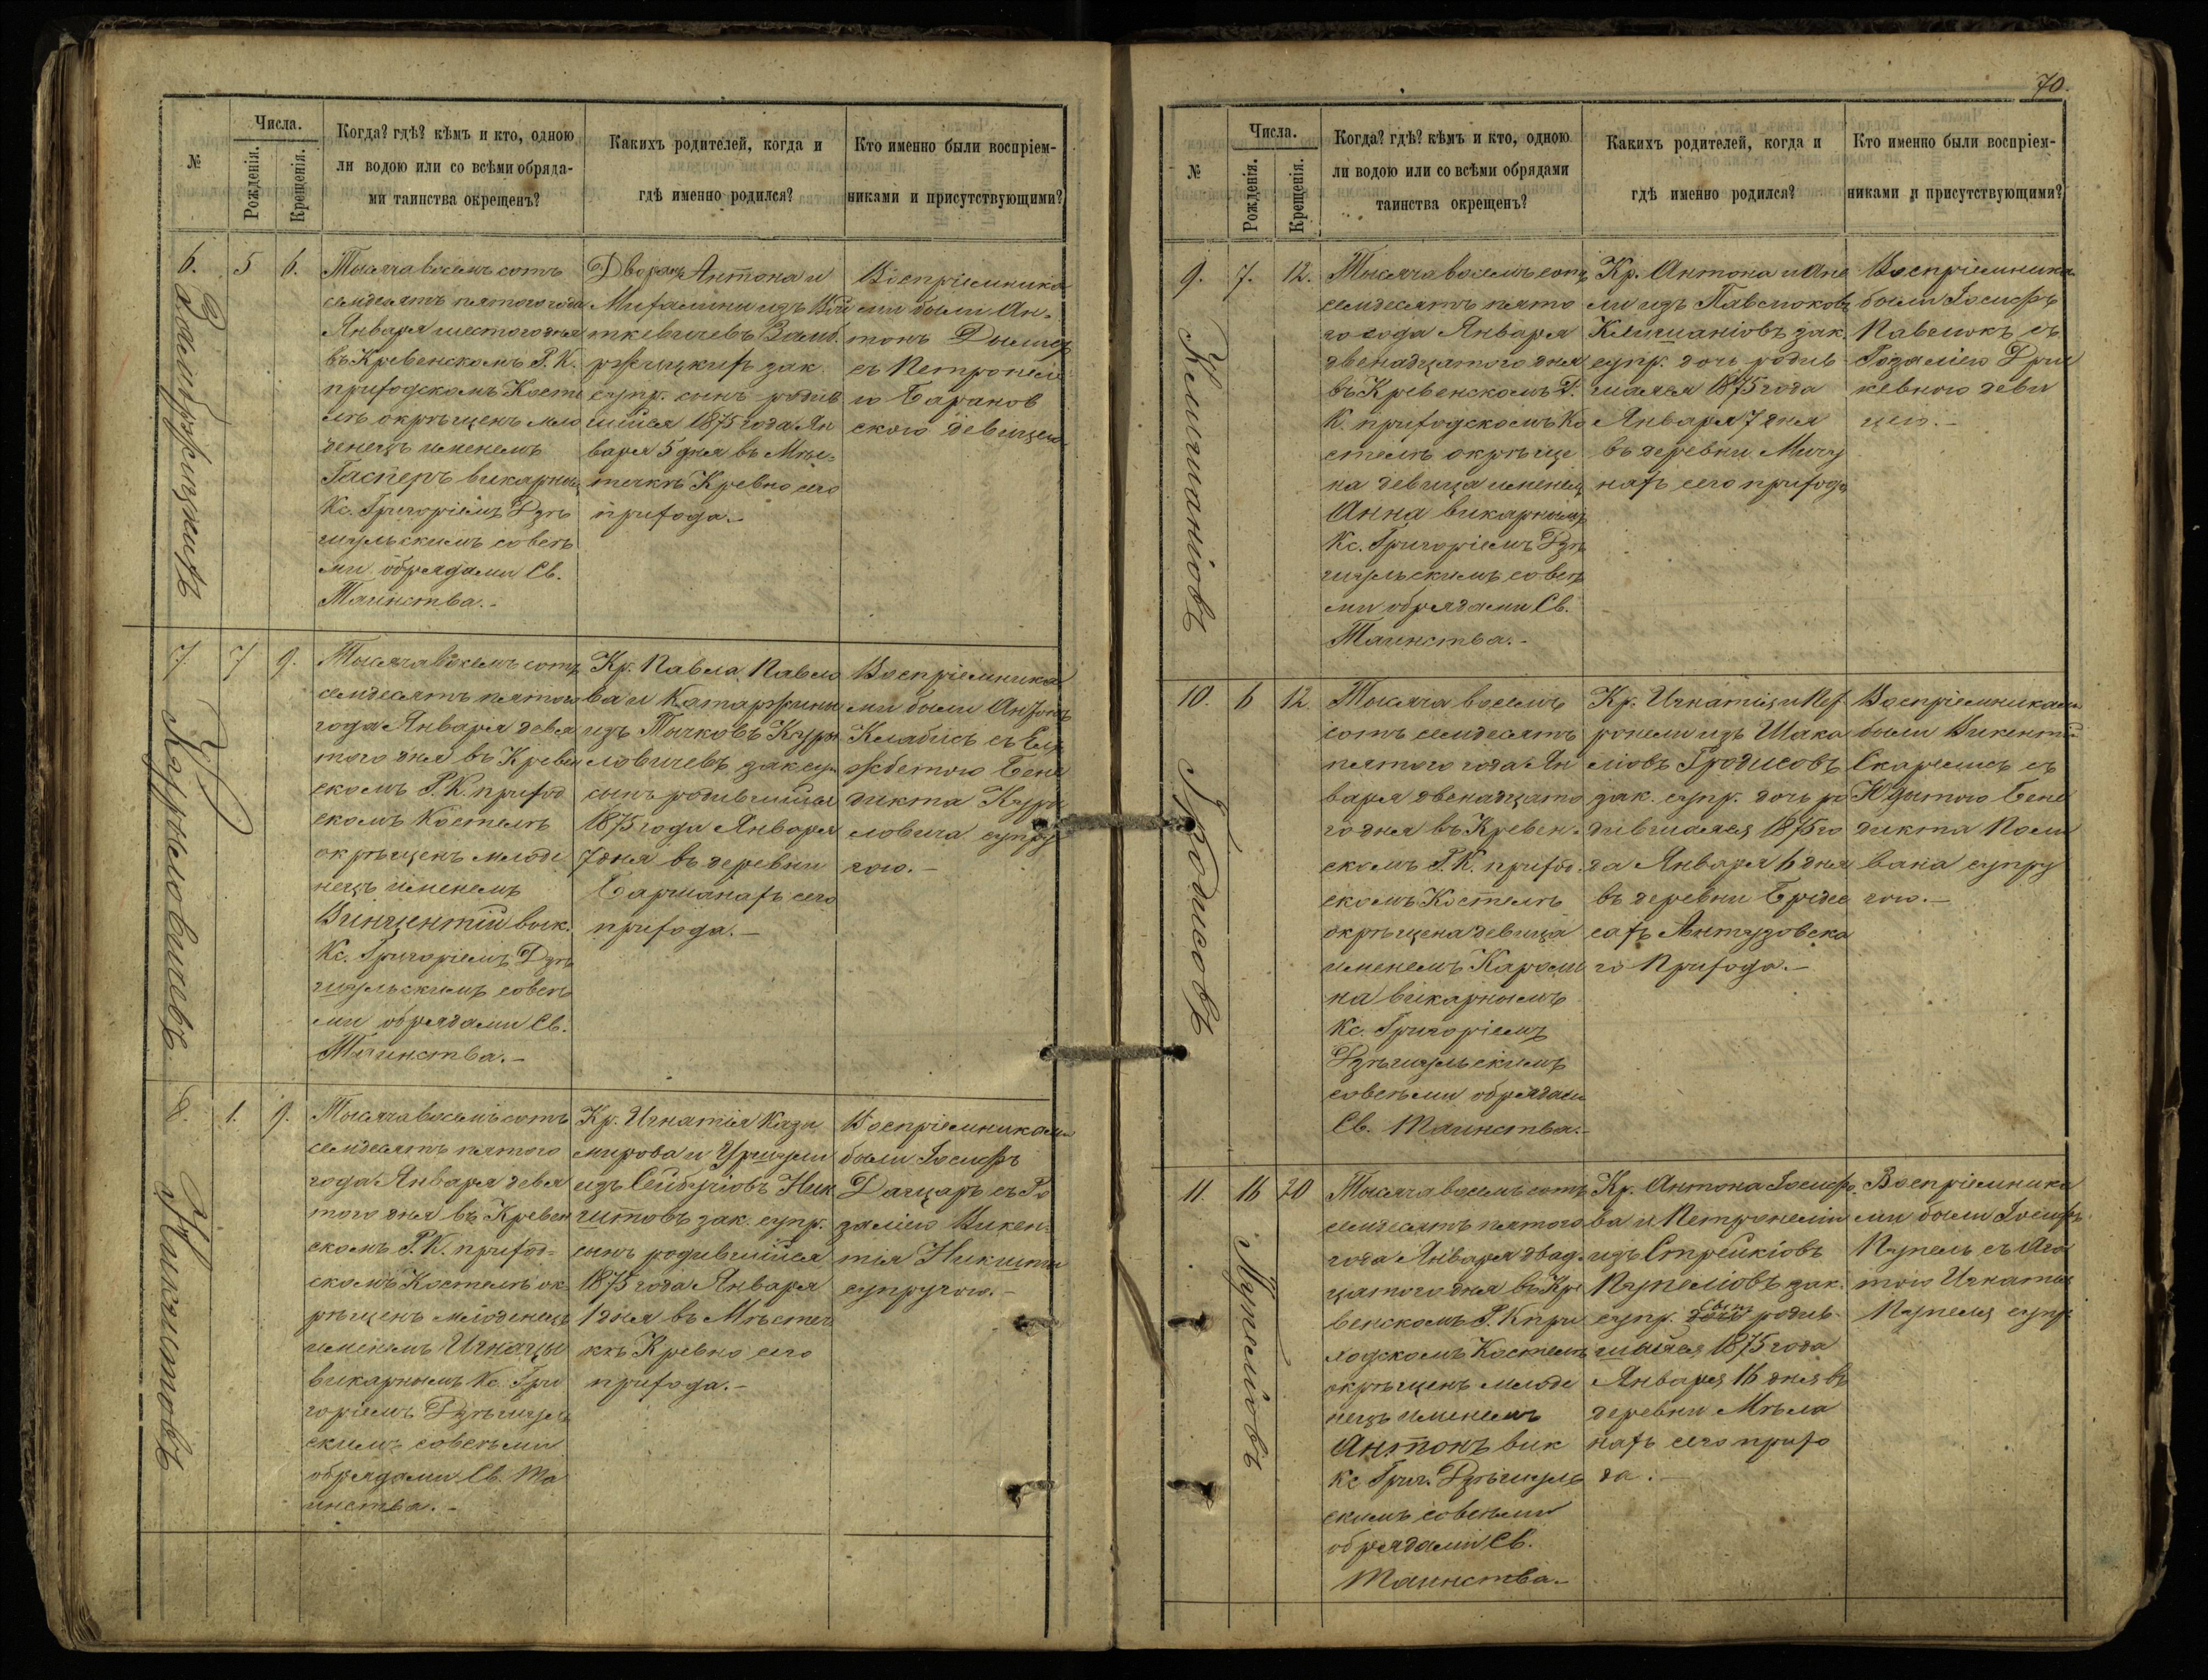 №
Числа.
Рожденія.
Крещенія.
Когда? гдѣ? кѣмъ и кто, одною
ли водою или со всѣми обряда-
ми таинства окрещенъ?
Какихъ родителей, когда и
гдѣ именно родился?
Кто именно были воспріем-
никами и присутствующими?
6.
5
6.
Тысяча восемь сотъ
семдесятъ пятого года
Января шестого дня
въ Кревенскомъ Р. К.
приходскомъ Косте
лѣ окрѣщенъ мло
денецъ именемъ
Гасперъ викарнымъ
Кс. Григоріемъ Дзѣ
гшульскимъ совсѣ
ми обрядами Св.
Таинства.-
Дворянъ Антона и
Михалины изъ Вой
ткевичевъ
зак.
супр. сынъ родив
шійся 1875 года Ян
варя 5 дня въ Мѣс-
течкѣ Крево сего
прихода.-
Воспріемника
ми были Ан-
тонъ
съ Петронеле
ю Баранов
скою девицею
7.
7
9.
Курыловичевъ
Тысяча восемь сотъ
семдесятъ пятого
года Января девя
того дня въ Кревен
скомъ Р. К. приход
скомъ Костелѣ
окрѣщенъ младе
нецъ именемъ
Винцентій вик.
Кс. Григоріемъ Дзѣ
гшульскимъ совсѣ
ми обрядами Св.
Таинства.-
Кр. Павла Павло
ва и Катаржины
изъ Тычковъ Куры
ловичевъ зак. суп.
сынъ родившійся
1875 года Января
7 дня въ деревни
сего
прихода.-
Воспріемника
ми были Антонъ
съ Ел
жбетою Бене
дикта Куры
ловича супру
гою.-
8.
1.
9.
Никштовъ
Тысяча восемь сотъ
семдесятъ пятого
года Января девя
того дня въ Кревен
скомъ Р. К. приход-
скомъ Костелѣ ок
рѣщенъ млоденецъ
именемъ Игнацы
викарнымъ Кс. Гри
горіемъ Дзѣгшуль
скимъ совсѣми
обрядами Св. Та
инства.-
Кр. Игнатія Кази
мирова и Уршули
изъ Ник
штовъ зак. супр.
сынъ родившійся
1875 года Января
1 дня въ Мѣстеч
кѣ Крево сего
прихода.-
Воспріемникам
были Іосифъ
съ Ро
заліею Викен-
тія Никшты
супругою.-
70.
№
Числа.
Рожденія.
Крещенія.
Когда? гдѣ? кѣмъ и кто, одною
ли водою или со всѣми обрядами
таинства окрещенъ?
Какихъ родителей, когда и
гдѣ именно родился?
Кто именно были воспріем-
никами и присутствующими?
9.
7.
12.
Тысяча восемь сотъ
семдесятъ пято
го года Января
двенадцатого дня
въ Кревенскомъ Р.
К. приходскомъ Ко
стелѣ окрѣще
на девица именемъ
Анна викарнымъ
Кс. Григоріемъ Дзѣ
гшульскимъ совсѣ
ми обрядами Св.
Таинства.-
Кр. Антона и Ане
ли изъ Павлюковъ
зак.
супр. дочь родив
шаяся 1875 года
Января 7 дня
въ деревни Мичу
нахъ сего прихода
Воспріемника
были Іосифъ
Павлюкъ съ
Розаліею Гри
невною деви
цею.-
10.
6
12
Гродисовъ
Тысяча восемь
сотъ семдесятъ
пятого года Ян
варя двенадцато
го дня въ Кревен-
скомъ Р. К. приход.
скомъ Костелѣ
окрѣщена девица
именемъ Кароли
на викарнымъ
Кс. Григоріемъ
Дзѣгшульскимъ
совсѣми обрядами
Св. Таинства.-
Кр. Игнатія и Пет
ронели изъ Шака
лювъ Гродисовъ
зак. супр. дочь ро
дившаяся 1875 го
да Января 6 дня
въ деревни
го Прихода.-
Воспріемниками
были Викентій
съ
Юдытою Бене
дикта
супру
гою.-
11.
16
20
Пупеліовъ
Тысяча восемь сотъ
семдесятъ пятого
года Января двад-
цатого дня въ Кре
венскомъ Р. К при
ходскомъ Костелѣ
окрѣщенъ младе
нецъ именемъ
Антонъ вик
Кс Григ. Дзѣгшуль
скимъ совсѣми
обрядами Св.
Таинства.-
Кр. Антона Іосифо
ва и Петронеліи
изъ
Пупеліовъ зак.
супр. сынъ родив-
шійся 1875 года
Января 16 дня въ
деревни Мѣла
нахъ сего прихо
да.-
Воспріемника
ми были Іосифъ
Пупель съ Ага
тою Игнатія
Пупеля супр